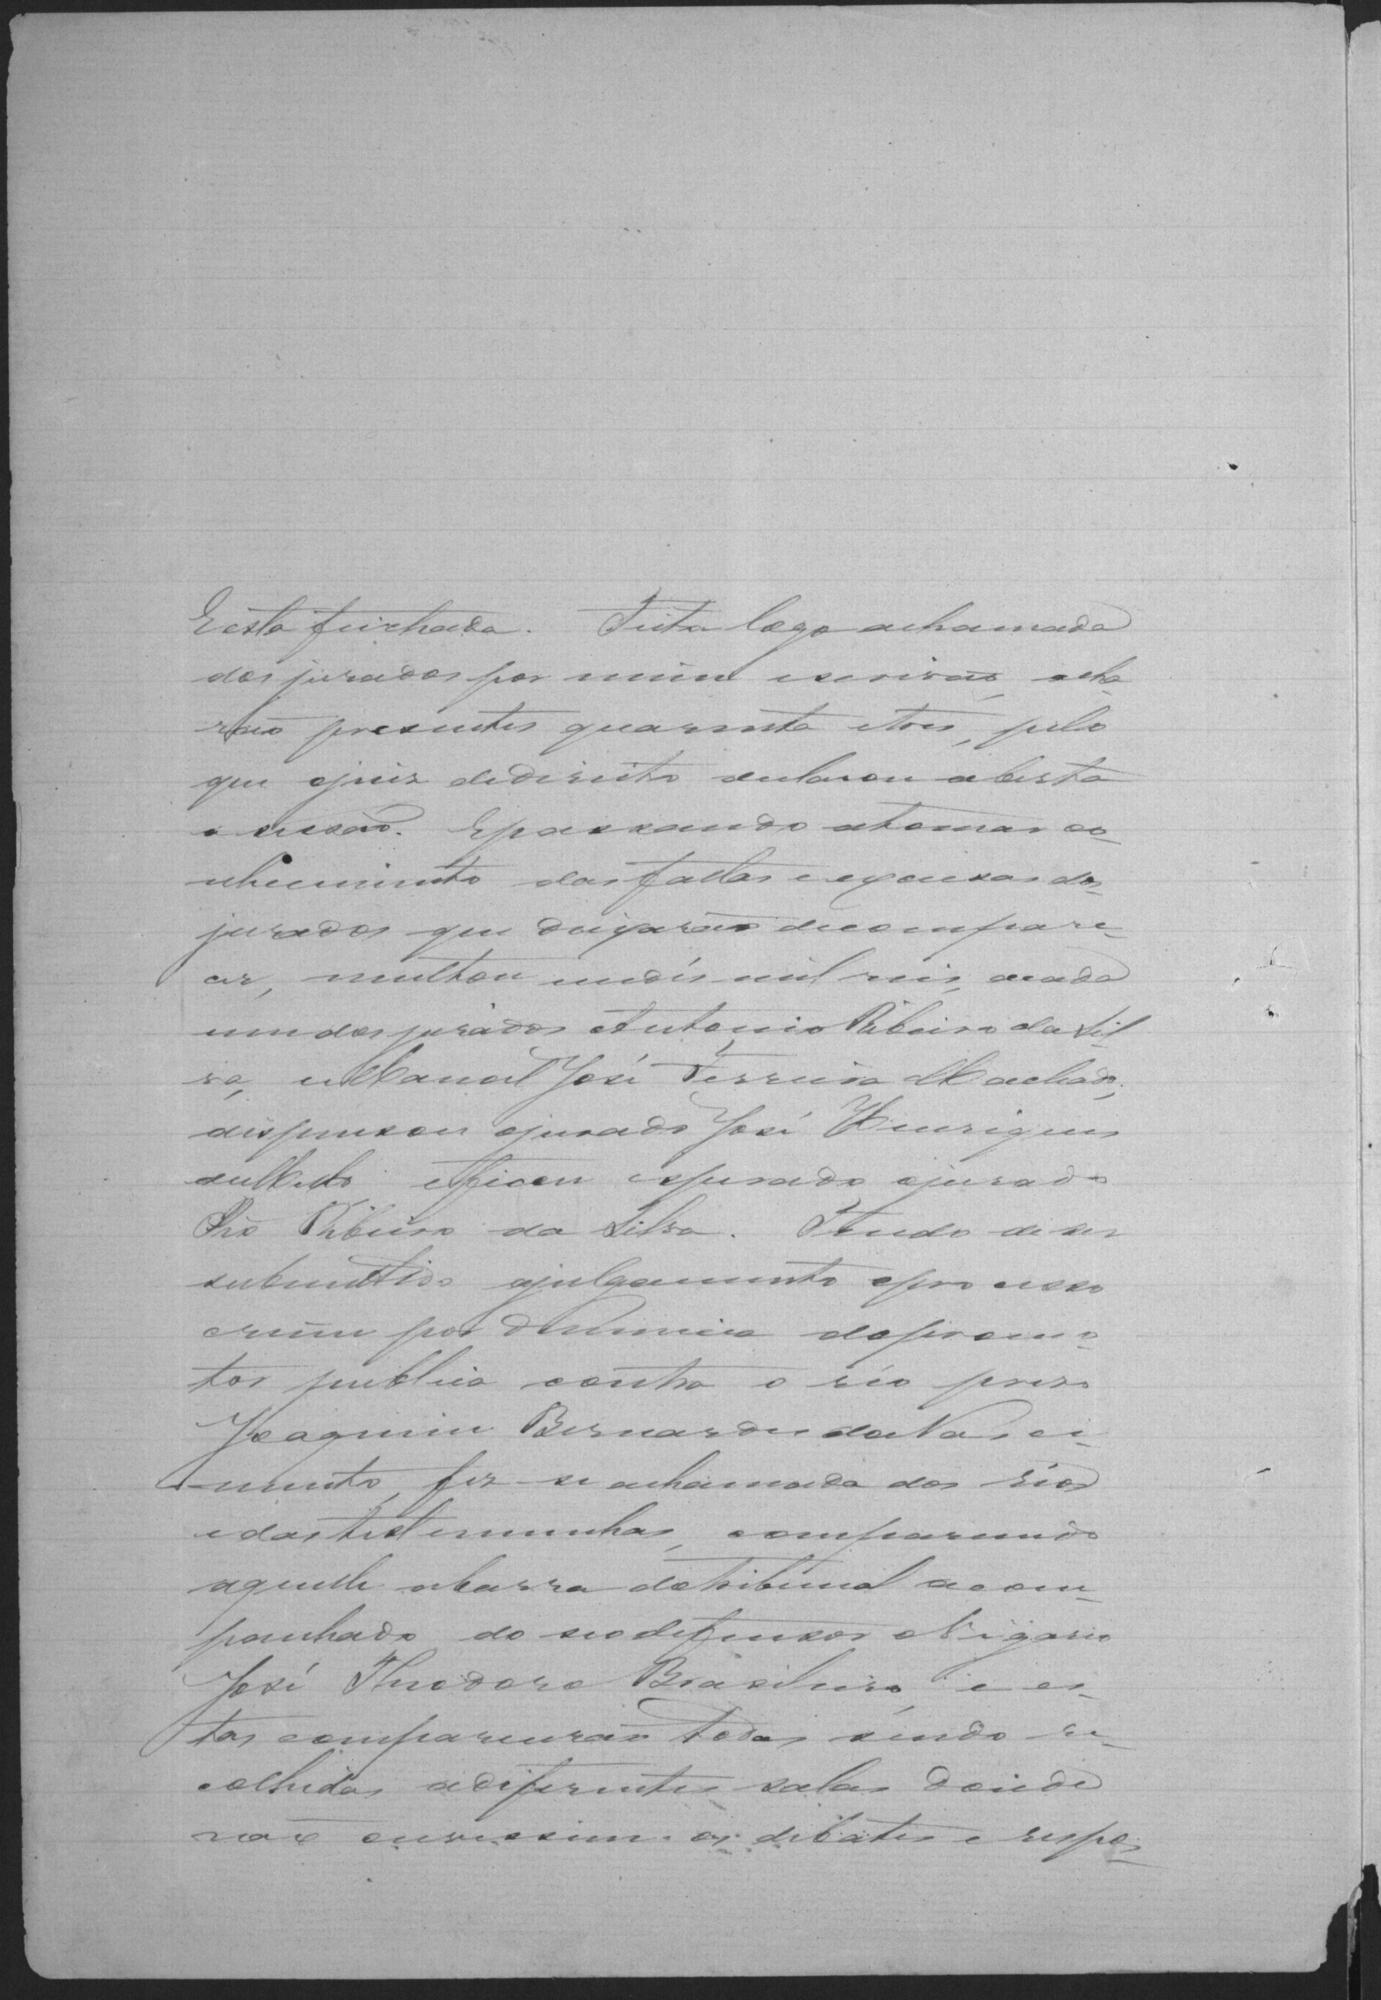 E esta fixchada. Feita logo a chamada
dos jurados por mim escrivão, acha
rão presentes quarenta e tres, pelo
que o juiz de direito declarou aberta
a sessão. E passando a tomar co
nhecimento das faltas e excusas dos
jurados que deixarão de compare
cer, multou em dés mil reis, a cada
um dos jurados Antonio Ribeiro da Sil
va, e Manoel José Ferreira Machado,
dispensou o jurado José Henriques
de Mello e ficou esperado o jurado
Pio Ribeiro da Silva. Tendo de ser
submettido a julgamento o processo
crime por denuncia do promo
tor publico contra o réo preso
Joaquim Bernardes do Nasci
mento, fez-se a chamada dos réos
e das testemunhas, comparecendo
aquelle a barra do tribunal acom
panhado do seo defensor o Vigario
José Theodoro Brasileiro, e es
tas comparecerão todas sendo re
colhidas a diferentes salas donde
não ouvissem os debates e respos